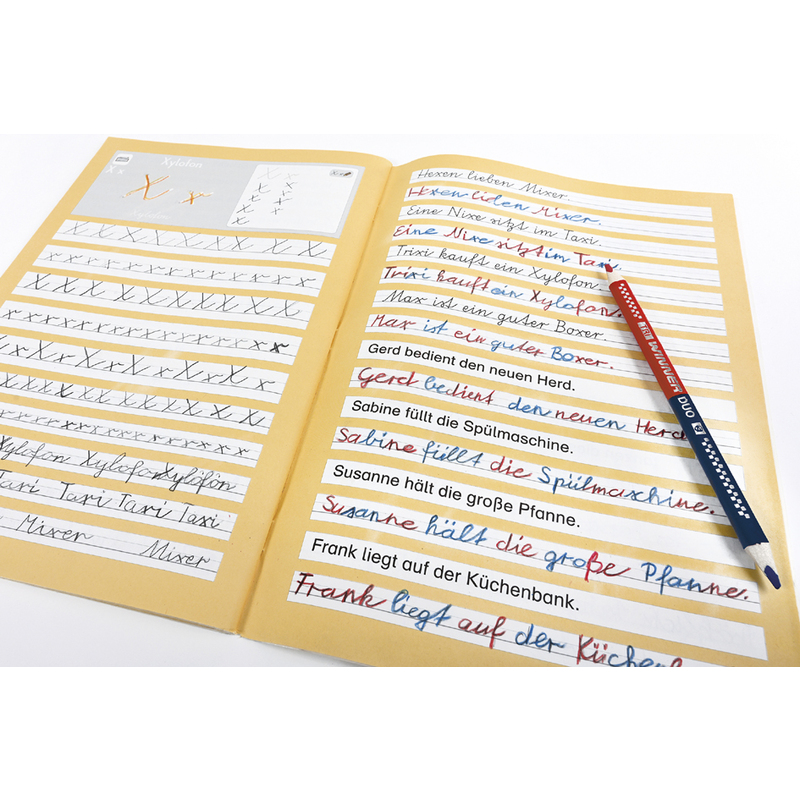 Xylofon
X x
X x
X X X X X X X X
x x x x x x x x x x x x
X X X X X X X X
x x x x x x x x x x x x x x
x X x X x X x X x X x
X X X X X X X X X X
x x x x x x x x x x x x x x
Xylofon Xylofon Xylofon
Taxi Taxi Taxi Taxi
Mixer Mixer
Hexen lieben Mixer.
Hexen lieben Mixer.
Eine Nixe sitzt im Taxi.
Eine Nixe sitzt im Taxi
Trixi kauft ein Xylofon.
Trixi kauft ein Xylofon.
Max ist ein guter Boxer.
Max ist ein guter Boxer.
Gerd bedient den neuen Herd.
Gerd bedient den neuen Herd
Sabine füllt die Spülmaschine.
Sabine füllt die Spülmaschine.
Susanne hält die große Pfanne.
Susanne hält die große Pfanne.
Frank liegt auf der Küchenbank.
Frank liegt auf der Küchen
WINNER DUO